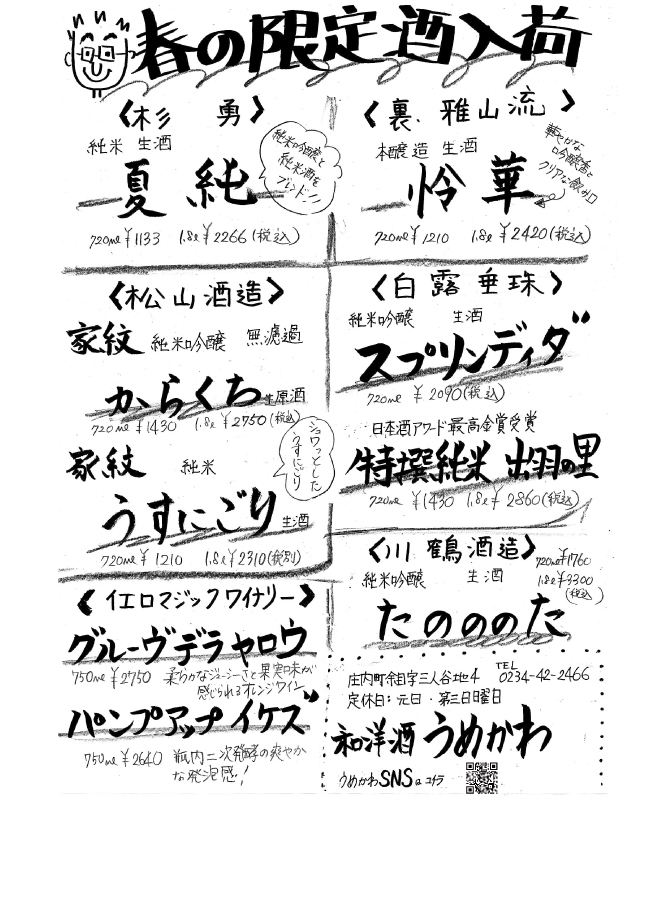 春の限定酒入荷
〈杉 勇〉
純米 生酒
純米吟醸と
純米酒を
ブレンド!!
夏純
720ml ¥1133 1.8ℓ ¥2266(税込)
〈裏・雅山流〉
本醸造 生酒
華やかな
吟醸香と
クリアな飲み口
怜華
720ml ¥1210 1.8ℓ ¥2420(税込)
〈松山酒造〉
家紋 純米吟醸 無濾過
からくち 生原酒
720ml ¥1430 1.8ℓ ¥2750(税込)
家紋 純米
シュワっとした
うすにごり
うすにごり 生酒
720ml ¥1210 1.8ℓ ¥2310(税別)
〈白露垂珠〉
純米吟醸 生酒
スプリンディダ"
720ml ¥2090(税込)
日本酒アワード最高金賞受賞
特撰純米 出羽の里
720ml ¥1430 1.8ℓ ¥2860(税込)
〈川鶴酒造〉
720ml ¥1760
1.8ℓ ¥3300
(税込)
純米吟醸 生酒
たのののた
〈イエロマジックワイナリー〉
グルーヴデラヤロウ
750ml ¥2750 柔らかなジューシーさと果実味が
感じられるオレンジワイン
パンプアップイケズ"
750ml ¥2640 瓶内二次発酵の爽やか
な発泡感!
庄内町余目字三人谷地4 TEL 0234-42-2466
定休日:元日・第三日曜日
和洋酒 うめかわ
うめかわSNSはコチラ